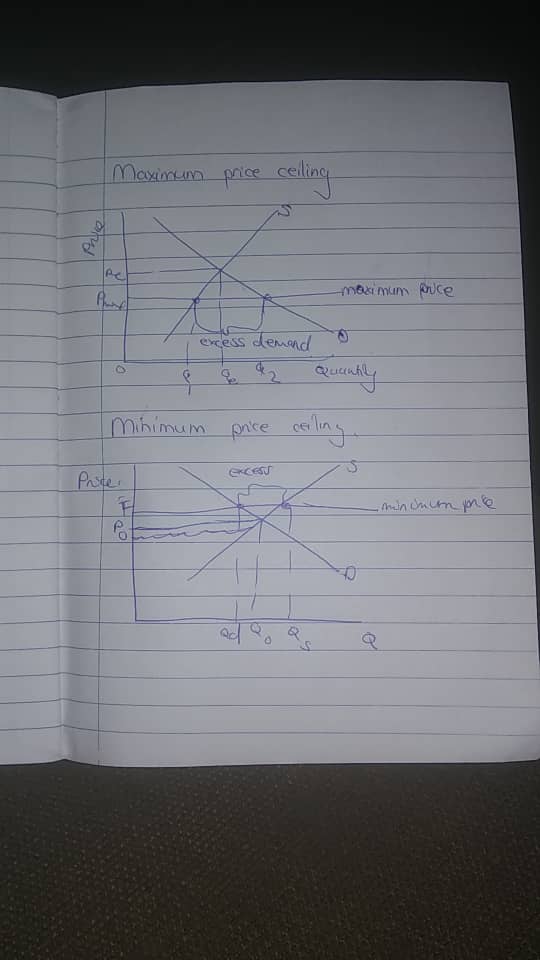 Maximum price ceiling
S
Price
Pe
Pmax
maximum price
D
excess demand
O
Q1
Qe
Q2
Quantity
Minimum price ceiling.
Price.
excess
S
minimum price
P0
D
Qd
Q0
Qs
Q